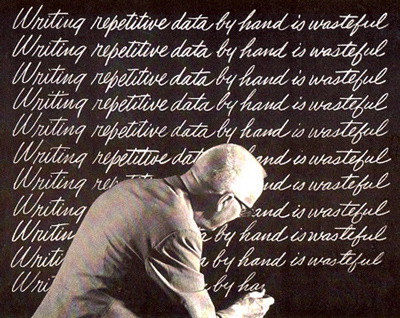 Writing repetitive data by hand is wasteful
Writing repetitive data by hand is wasteful
Writing repetitive data by hand is wasteful
Writing repetitive data by hand is wasteful
Writing repetitive data by hand is wasteful
Writing repetitive data hand is wasteful
Writing is wasteful
Writing and is wasteful
Writing by hand is wasteful
Writin by hand is wasteful
Wri by han